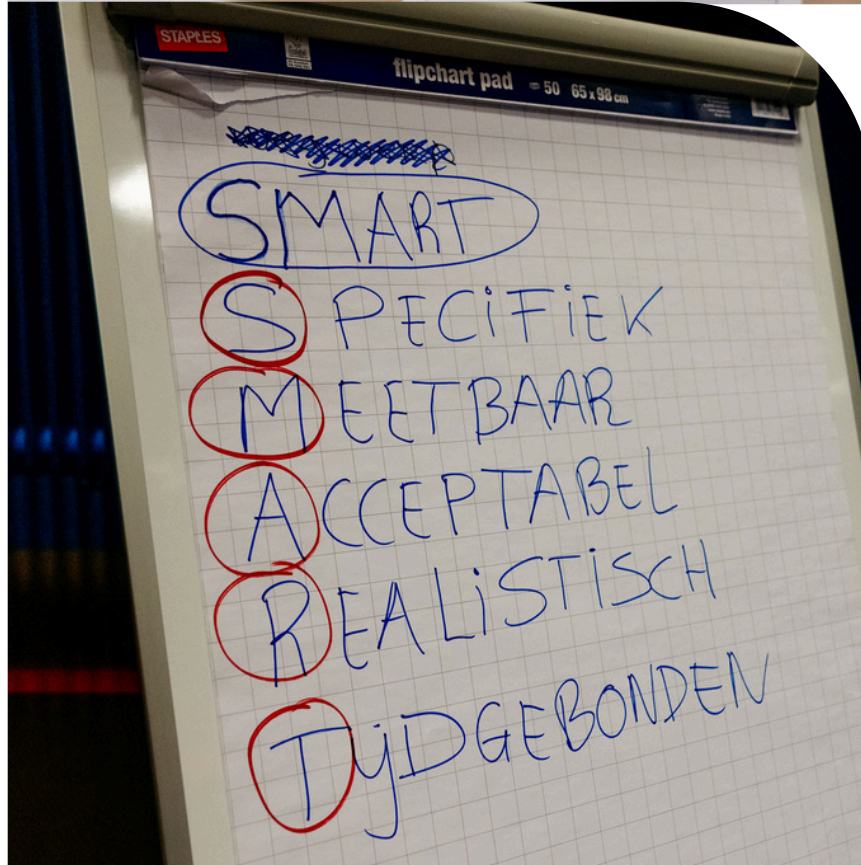 STAPLES
flipchart pad 50 65 x 98 cm
SMART
SPECIFIEK
MEETBAAR
ACCEPTABEL
REALISTISCH
TIJDGEBONDEN